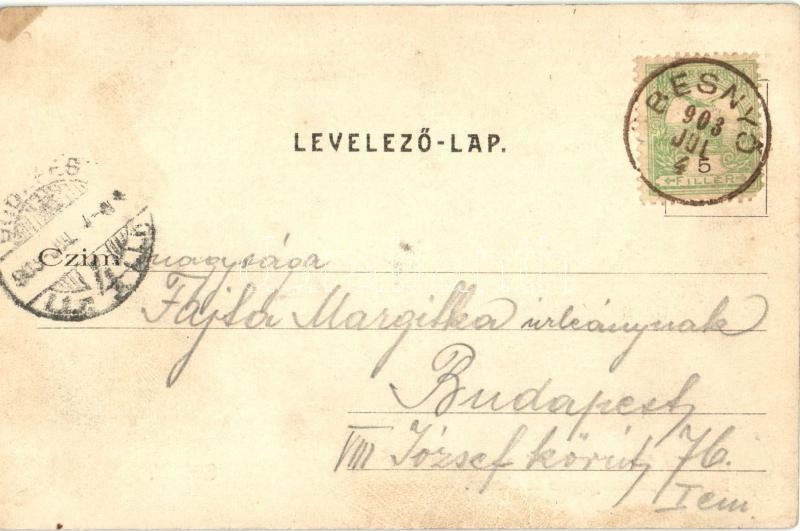 LEVELEZŐ-LAP.
BESNYŐ
903
JUL
4
5
FILLER
Czim nagysága
Fajta Margitka urleánynak
Budapest
VIII József körút 76.
I em.